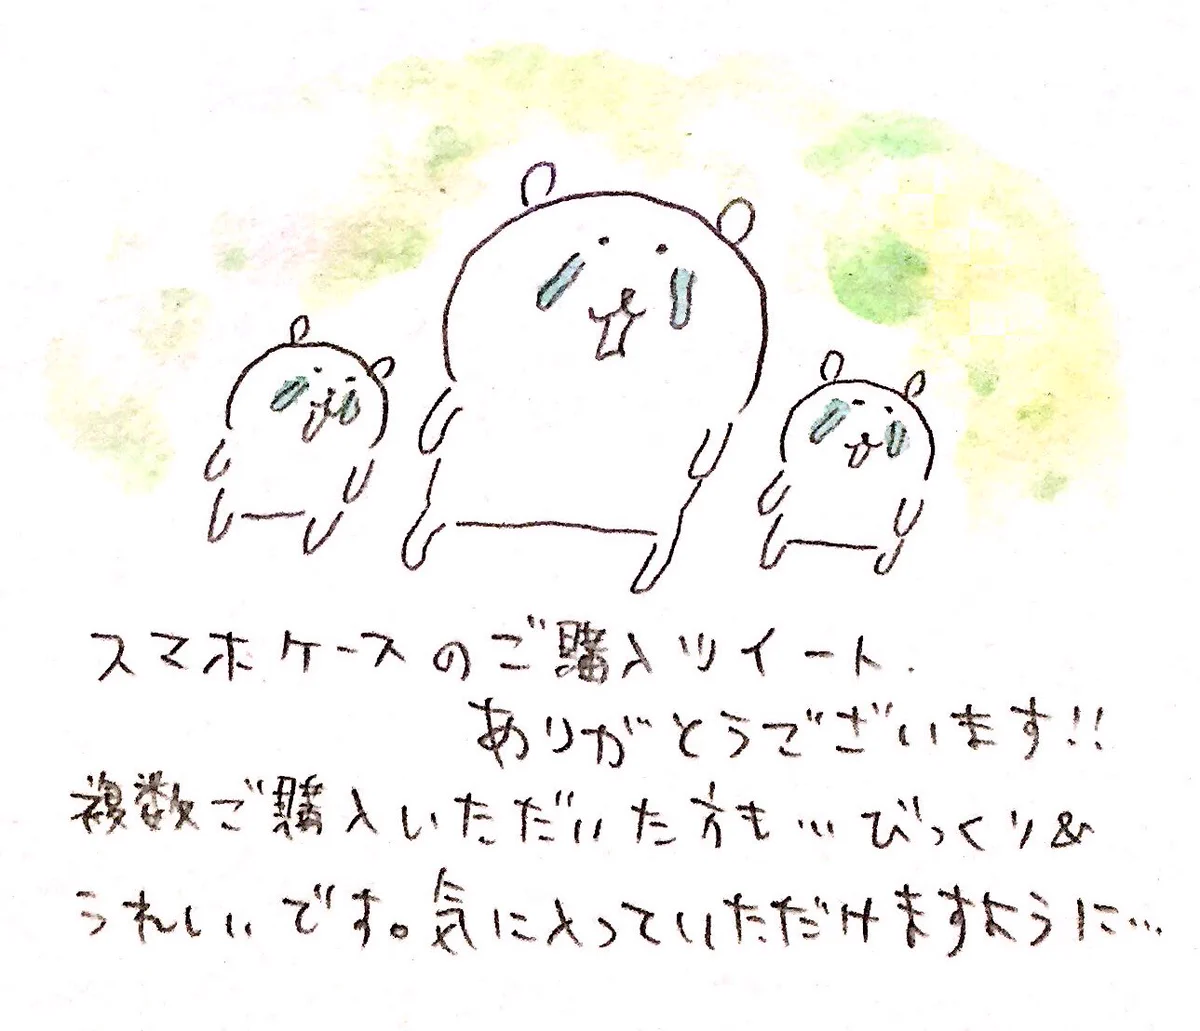 スマホケースのご購入ツイート.
ありがとうございます!!
複数ご購入いただいた方も…びっくり&
うれしいです。気に入っていただけますように…